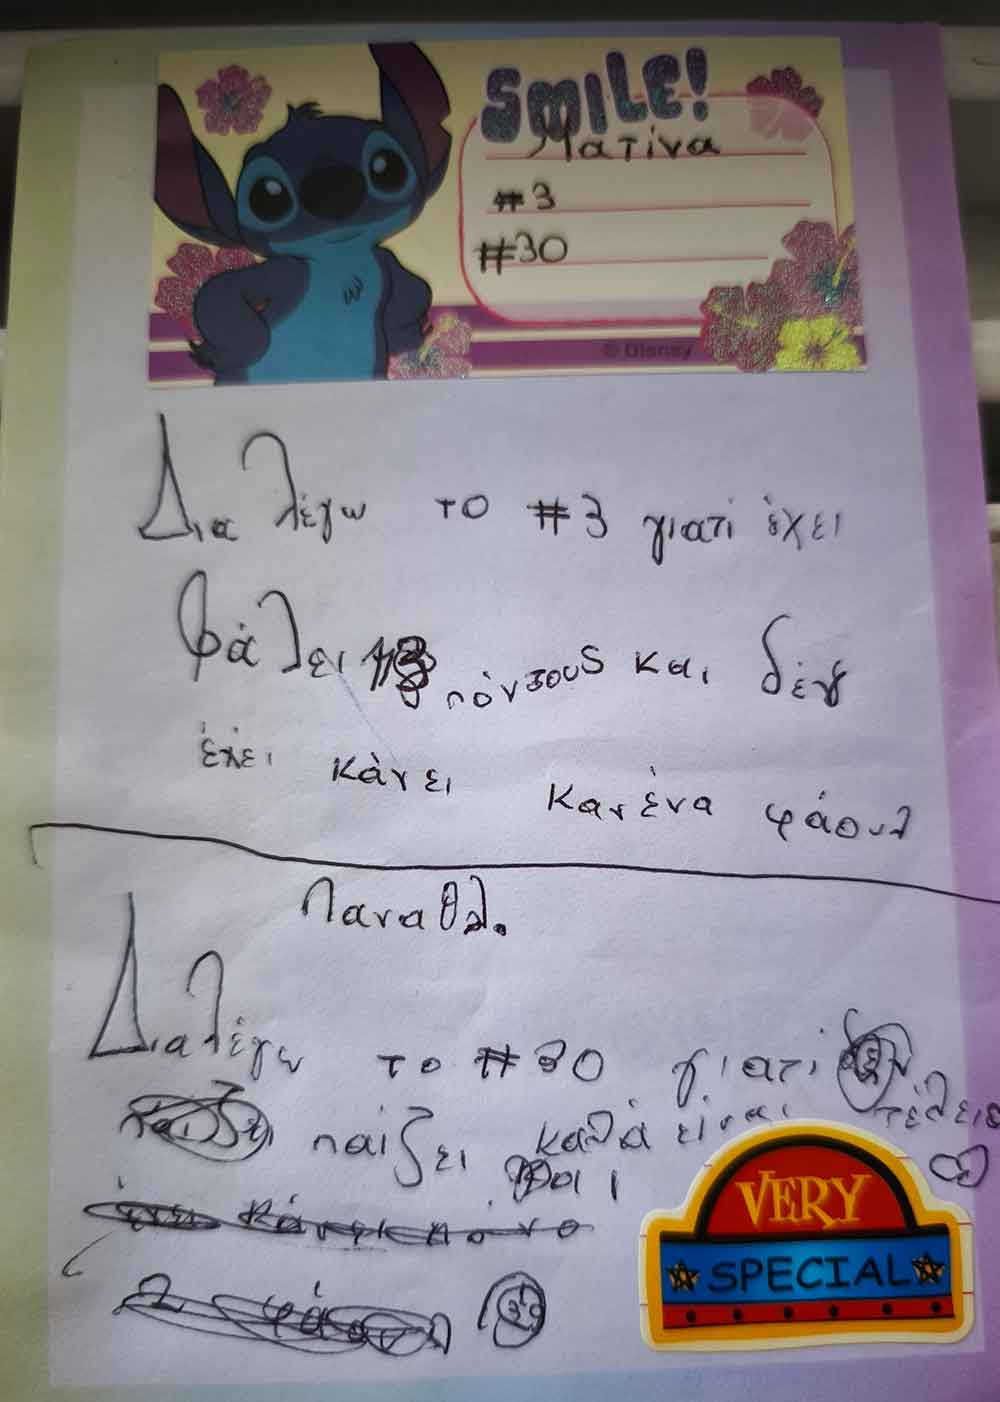 SMILE!
Ματίνα
#3
#30
© Disney
Δια λέγω το #3 γιατί έχει
βάλει πόντους και δέν
έχει κάνει κανένα φάουλ
Παναθλ.
Διαλέγω το #30 γιατί
παίζει καλά είναι τέλειο
και
VERY
SPECIAL